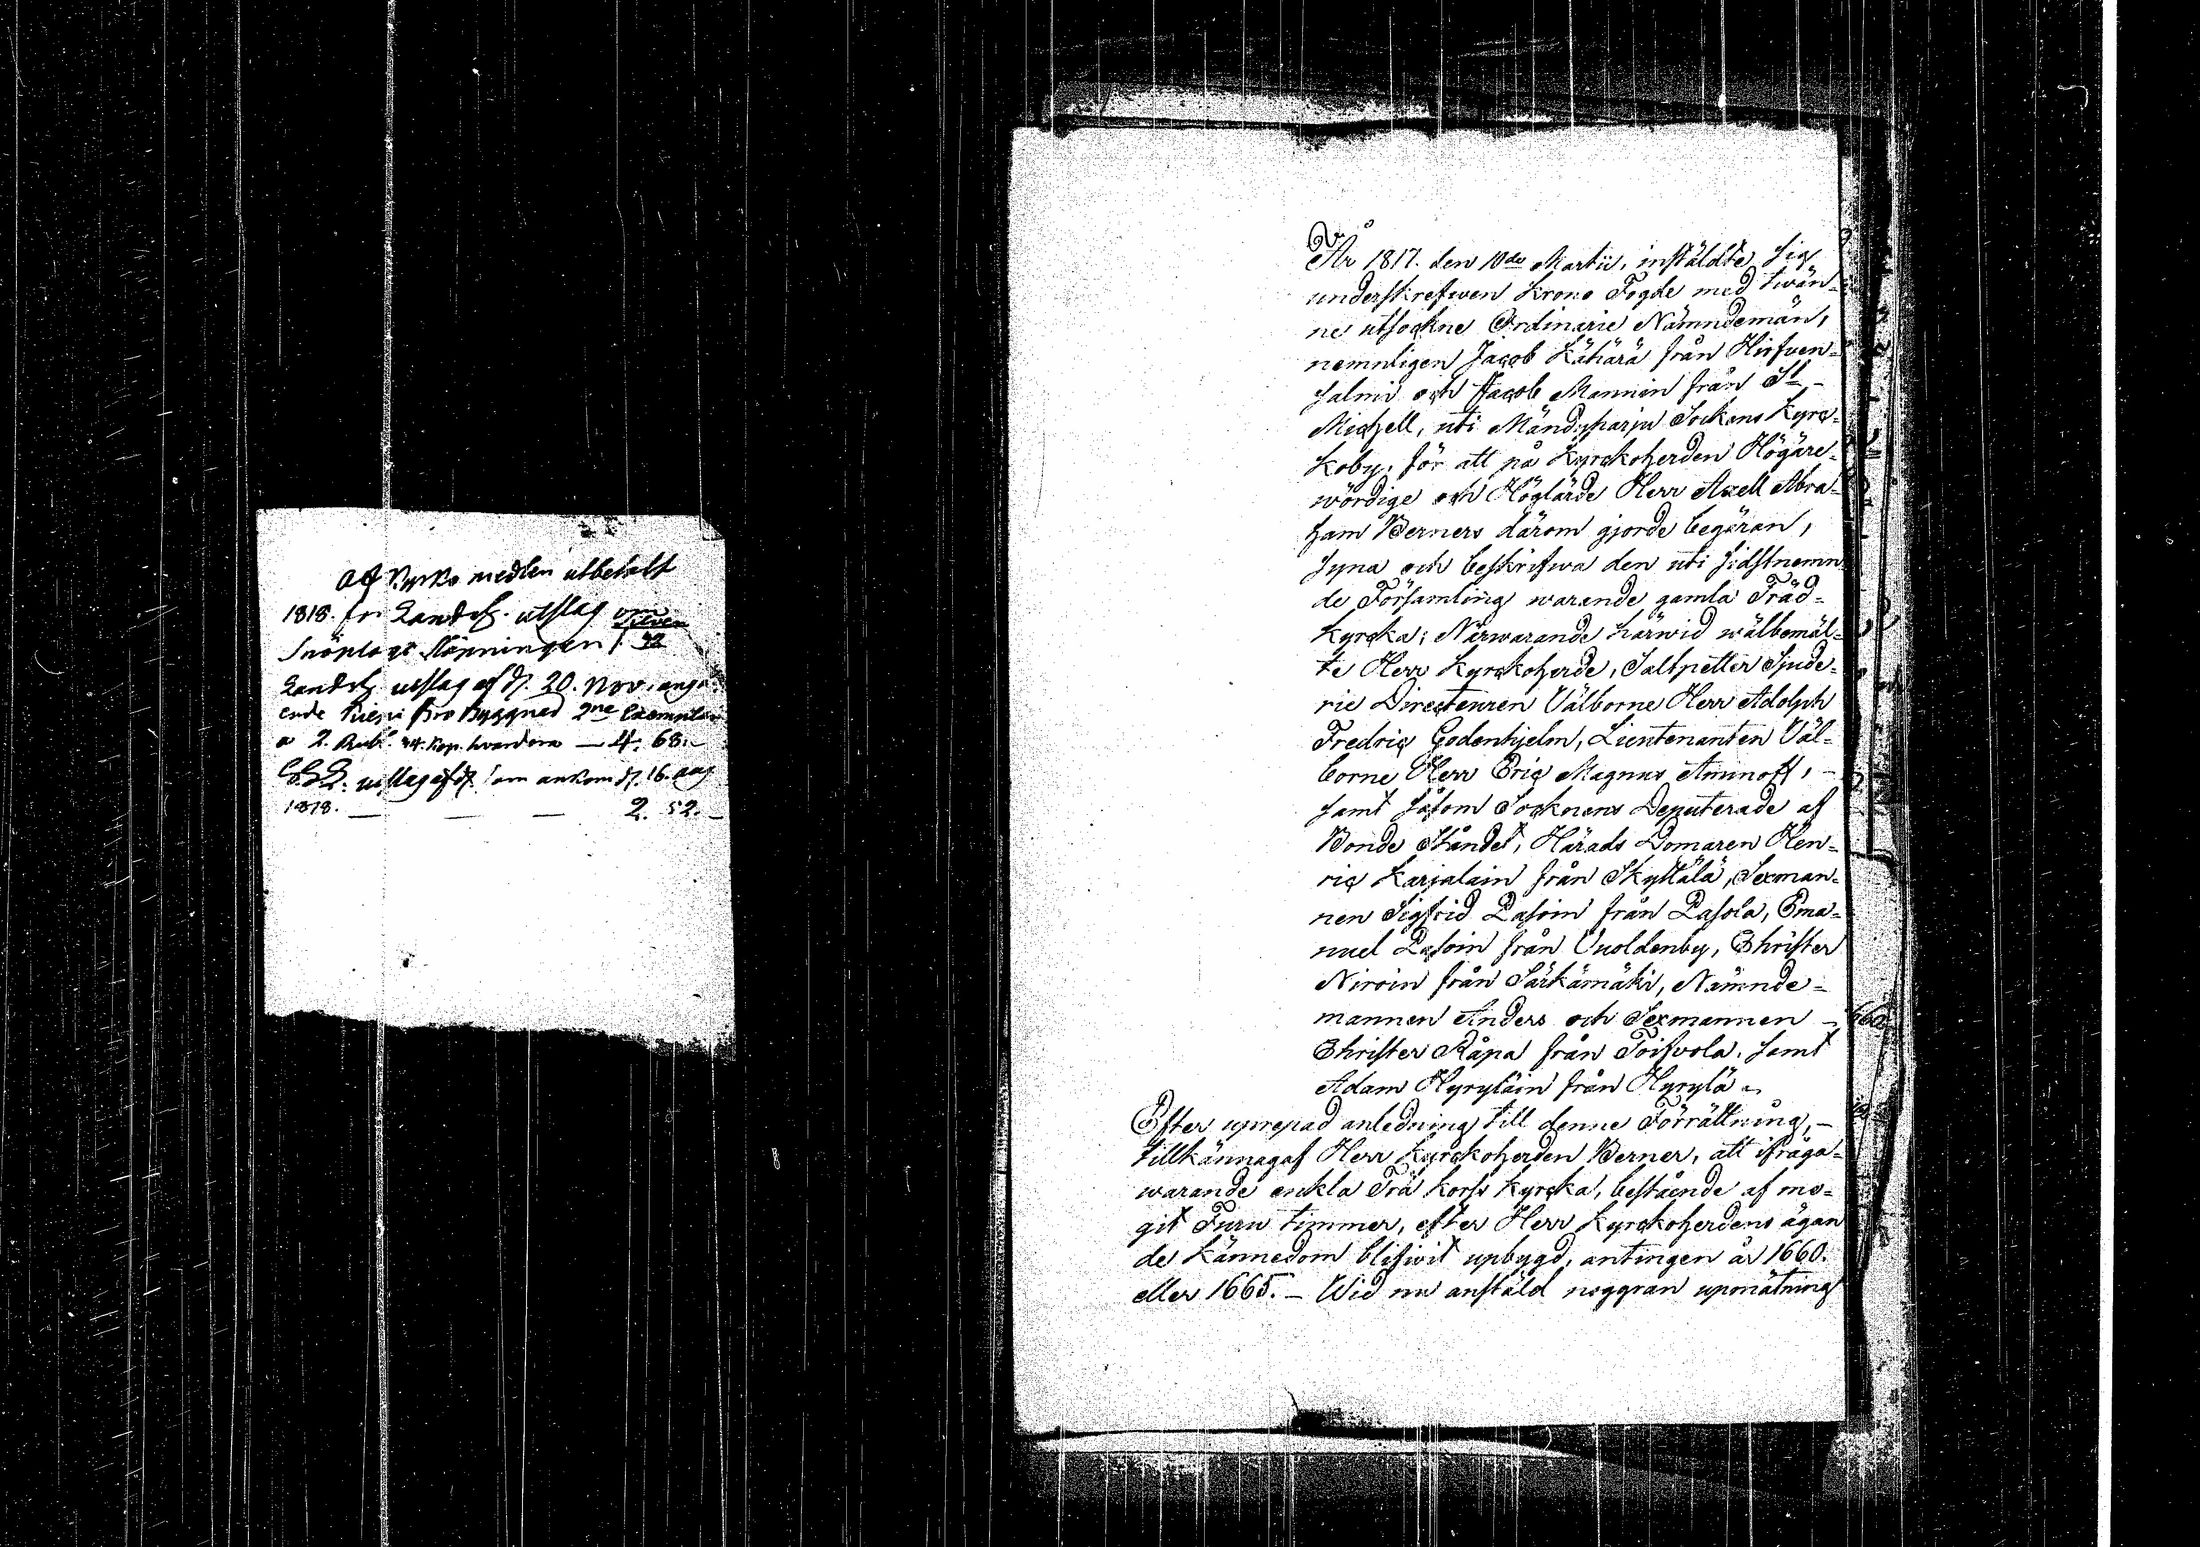 af Kyrko medlen utbetalt
1818. för Landsh. utslag om
Snöplogs
Landsh. utslag af d. 20. Nov. angå-
ende Bro byggnad 2ne Exemplar
a 2. Rub. 34. Kop. hvardera — 4. 68. —
utslag af d. som ankom d. 16. aug
1818. — — — 2. 52. —
År 1817. den 10de Martii, instäldte sig
underskrefwen Krono Fogde med twän-
ne utsockne Ordinarie Nämndemän,
nemnligen Jacob Kähärä från Hirfven-
salmi och Jacob Mannin från St. -
Michell, uti Mändyharju Sockens Kyrc-
koby, för att på Kyrckoherden Högäre-
wördige och Höglärde Herr Axell Abra-
ham Berners därom gjorde begäran,
syna och beskrifwa den uti sidstnemn
de Församling warande gamla Träd-
kyrcka; Närwarande härwid wälbemäl-
te Herr Kyrckoherde, Saltpetter Sjude-
rie Directeuren Välborne Herr Adolph
Fredric Godenhjelm, Lieutenanten Väl-
borne Herr Eric Magnus Aminoff, -
samt såsom Socknens Deputerade af
Bonde Ståndet, Härads Domaren Hen-
ric Karjalain från Skyttälä, Sexman-
nen Sigfrid Pasoin från Pasola, Ema-
nuel Pasoin från Vuoldenby, Christer
Niroin från Särkämäki, Nämnde-
mannen Anders och Sexmannen -
Christer Råpa från Toifvola, samt
Adam Hyryläin från Hyrylä.
Efter uprepad anledning till denne Förrättning, -
tillkännagaf Herr Kyrckoherden Berner, att ifråga-
warande enkla Trä Korss Kyrcka, bestående af mo-
git Furu timmer, efter Herr Kyrckoherdens ägan
de kännedom blifwit upbygd, antingen år 1660.
eller 1665. – Wid nu anstäld noggran upmätning